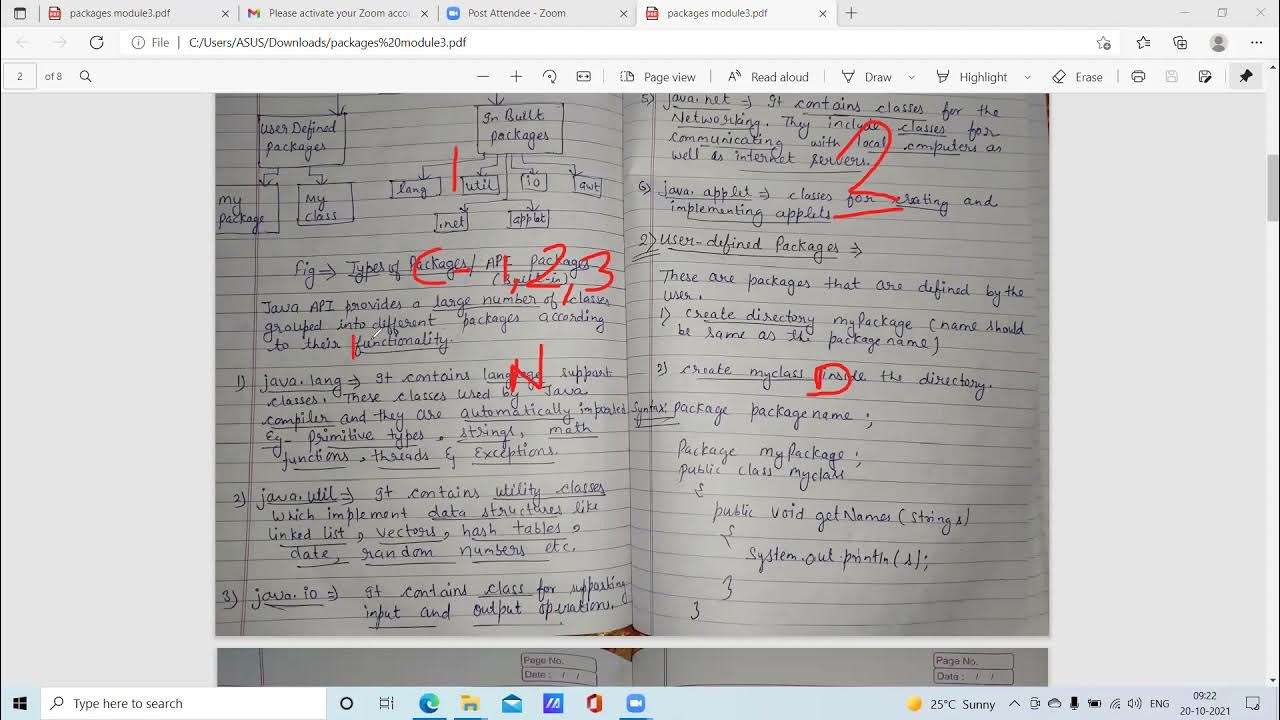 packages module3.pdf
Please activate your Zoom acco
Post Attendee - Zoom
packages module3.pdf
File
C:/Users/ASUS/Downloads/packages%20module3.pdf
2
of 8
Page view
Read aloud
Draw
Highlight
Erase
User Defined
packages
In Built
packages
My
package
My
class
lang
util
io
awt
.net
applet
Fig → Types of Packages / API Packages
(Built-in)
Java API provides a large number of classes
grouped into different packages according
to their functionality.
1) java.lang ⇒ It contains language support
classes. These classes used by Java
compiler and they are automatically imported
Eg- Primitive types, strings, math
functions, threads & Exceptions.
2) java.util ⇒ It contains utility classes
which implement data structures like
linked list, vectors, hash tables,
date, random numbers etc.
3) java.io ⇒ It contains class for supporting
input and output operations.
1
C- 1,2,3
1
N
5) java.net ⇒ It contains classes for the
Networking. They include classes for
communicating with local computers as
well as internet servers.
6) java.applet ⇒ classes for creating and
implementing applets
2) User-defined Packages ⇒
These are packages that are defined by the
user.
1) create directory myPackage (name should
be same as the package name)
2) create myclass inside the directory.
Syntax: package packagename;
Package myPackage;
public class myclass
{
public void getNames(String s)
{
System.out.println(s);
}
}
2
D
Page No.
Date: / /
Page No.
Date: / /
Type here to search
25°C Sunny
ENG
09:22
20-10-2021